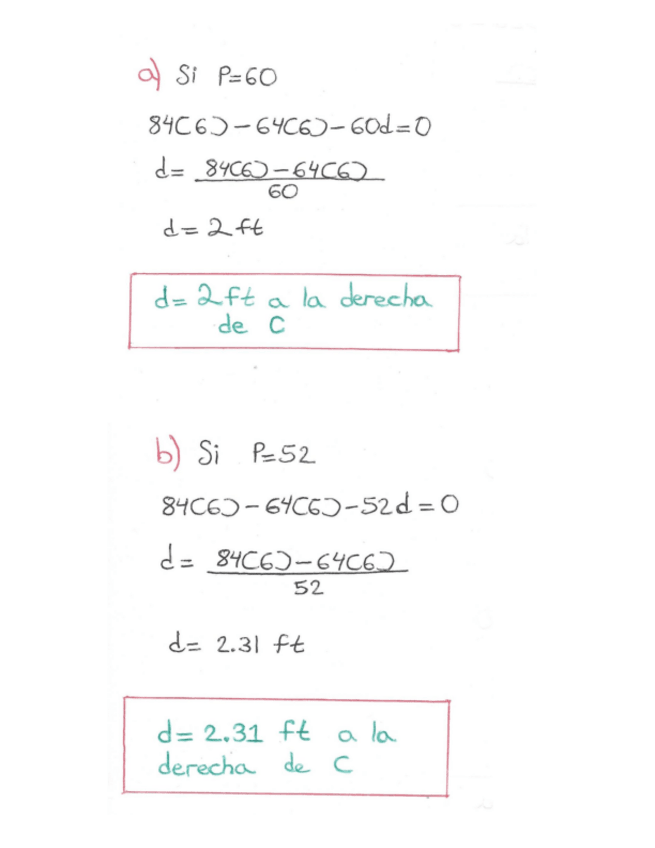 a) Si P=60
84(6)-64(6)-60d=0
d= 84(6)-64(6)
60
d= 2 ft
d= 2ft a la derecha
de C
b) Si P=52
84(6)-64(6)-52d=0
d= 84(6)-64(6)
52
d= 2.31 ft
d= 2.31 ft a la
derecha de C